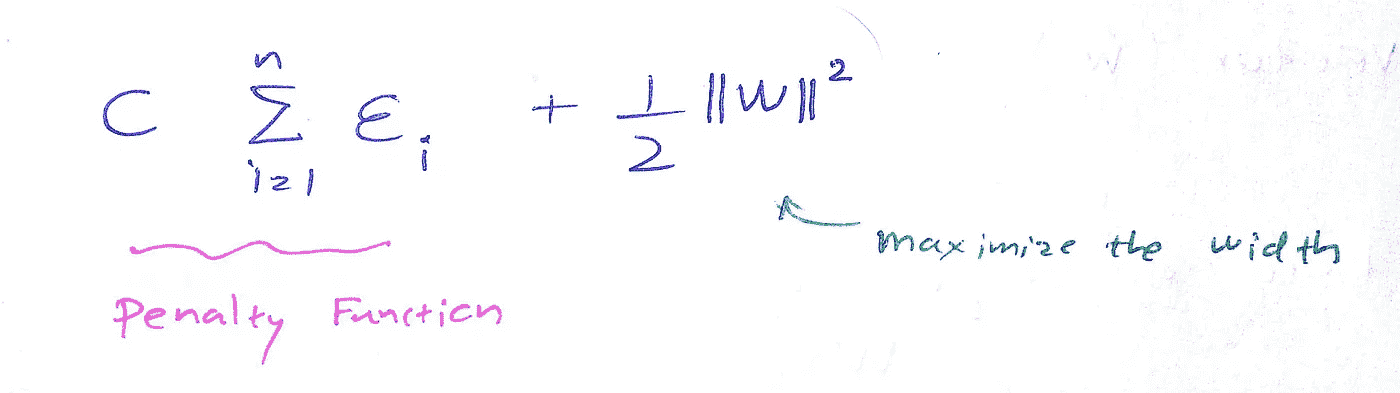 C n∑i=1 εi + 1/2 ||W||²
maximize the width
Penalty Function